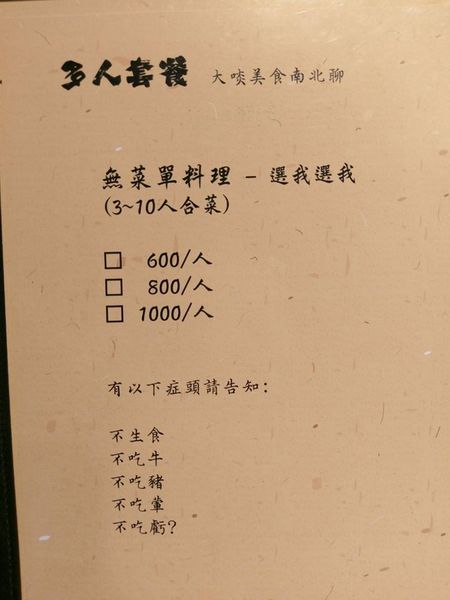 多人套餐 大啖美食南北聊
無菜單料理 - 選我選我
(3~10人合菜)
□ 600/人
□ 800/人
□ 1000/人
有以下症頭請告知:
不生食
不吃牛
不吃豬
不吃葷
不吃虧?